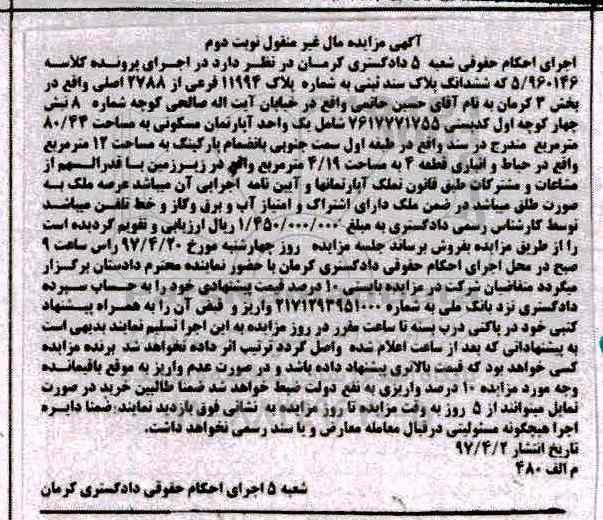 آگهی مزایده مال غیر منقول نوبت دوم
اجرای احکام حقوقی شعبه 5 دادگستری کرمان در نظر دارد در اجرای پرونده کلاسه
5/960146 که ششدانگ پلاک سند ثبتی به شماره پلاک 11994 فرعی از 2788 اصلی واقع در
بخش 3 کرمان به نام آقای حسین حاتمی واقع در خیابان آیت اله صالحی کوچه شماره 8 نبش
چهار کوچه اول کدپستی 7617771755 شامل یک واحد آپارتمان مسکونی به مساحت 80/44
مترمربع مندرج در سند واقع در طبقه اول سمت جنوبی بانضمام پارکینگ به مساحت 12 مترمربع
واقع در حیاط و انباری قطعه 4 به مساحت 4/19 مترمربع واقع در زیرزمین با قدرالسهم از
مشاعات و مشترکات طبق قانون تملک آپارتمانها و آیین نامه اجرایی آن میباشد عرصه ملک به
صورت طلق میباشد در ضمن ملک دارای اشتراک و امتیاز آب و برق وگاز و خط تلفن میباشد
توسط کارشناس رسمی دادگستری به مبلغ 1/450/000/000 ریال ارزیابی و تقویم گردیده است
را از طریق مزایده بفروش برساند جلسه مزایده روز چهارشنبه مورخ 97/4/20 راس ساعت 9
صبح در محل اجرای احکام حقوقی دادگستری کرمان با حضور نماینده محترم دادستان برگزار
میگردد متقاضیان شرکت در مزایده بایستی 10 درصد قیمت پیشنهادی خود را به حساب سپرده
دادگستری نزد بانک ملی به شماره 2171293951000 واریز و قبض آن را به همراه پیشنهاد
کتبی خود در پاکتی درب بسته تا ساعت مقرر در روز مزایده به این اجرا تسلیم نمایند بدیهی است
به پیشنهاداتی که بعد از ساعت اعلام شده واصل گردد ترتیب اثر داده نخواهد شد برنده مزایده
کسی خواهد بود که قیمت بالاتری پیشنهاد داده باشد و در صورت عدم واریز به موقع باقیمانده
وجه مورد مزایده 10 درصد واریزی به نفع دولت ضبط خواهد شد ضمنا طالبین خرید در صورت
تمایل میتوانند از 5 روز به وقت مزایده تا روز مزایده به نشانی فوق بازدید نمایند، ضمنا دایره
اجرا هیچگونه مسئولیتی درقبال معامله معارض و یا سند رسمی نخواهد داشت.
تاریخ انتشار 97/4/2
م الف 480
شعبه 5 اجرای احکام حقوقی دادگستری کرمان